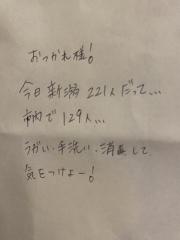 おつかれ様!
今日新潟221人だって…
市内で129人…
うがい・手洗い・消毒して
気をつけよー!